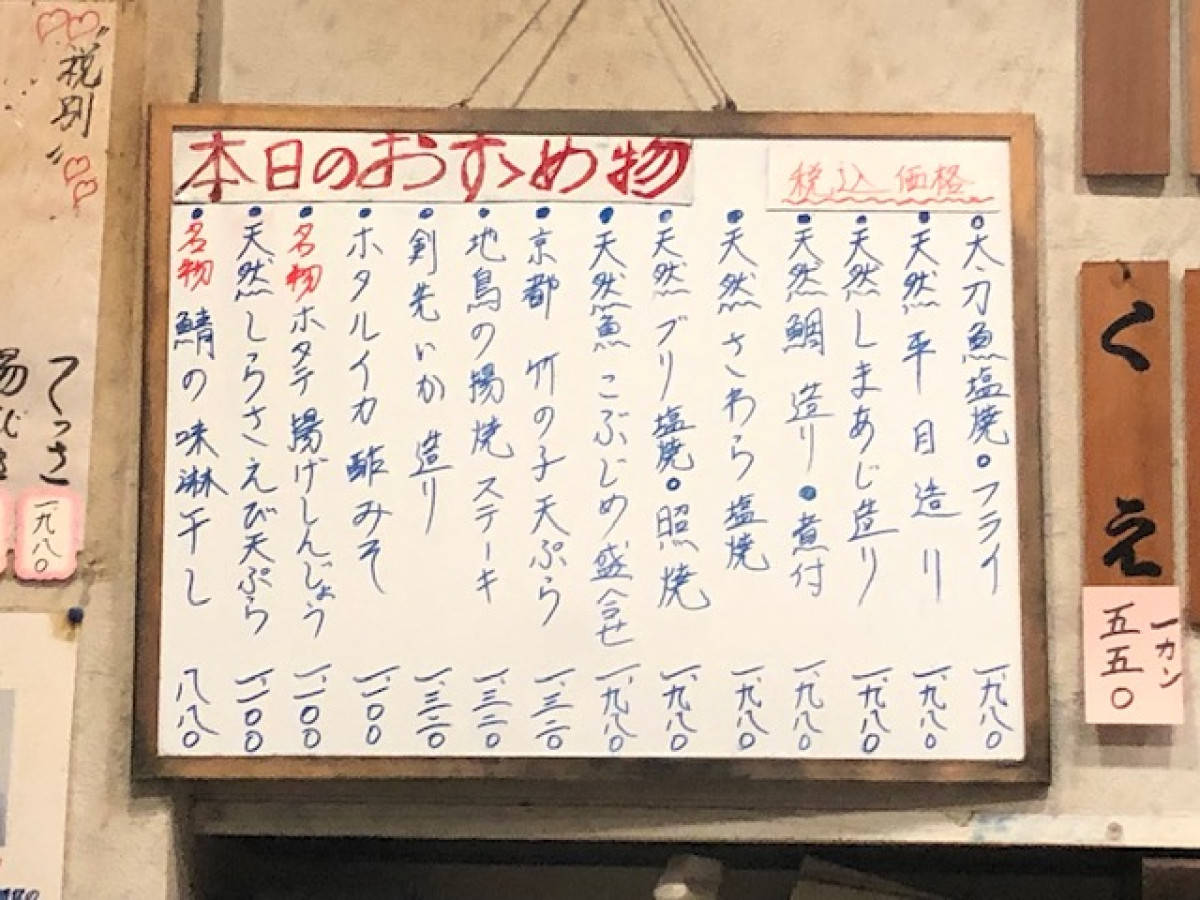 本日のおすゝめ物
税込価格
•太刀魚塩焼•フライ 一、九八〇
•天然平目造り 一、九八〇
•天然しまあじ造り 一、九八〇
•天然鯛 造り•煮付 一、九八〇
•天然さわら塩焼 一、九八〇
•天然ブリ塩焼•照焼 一、九八〇
•天然魚こぶじめ盛合せ 一、九八〇
•京都 竹の子天ぷら 一、三二〇
•地鳥の揚焼ステーキ 一、三二〇
•剣先いか 造り 一、三二〇
•ホタルイカ酢みそ 一、一〇〇
•名物ホタテ揚げしんじょう 一、一〇〇
•天然しらさえび天ぷら 一、一〇〇
•名物 鯖の味淋干し 八八〇
くえ
一カン
五五〇
"税別"
てっさ
一九八〇